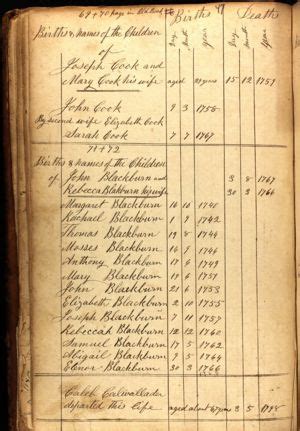 69 + 70 page in
Births Deaths
Births & Names of the Children
Day Month Year Day Month Year
of
Joseph Cook and
Mary Cook his wife aged years 15 12 1759
John Cook 9 3 1758
By second wife Elizabeth Cook
Sarah Cook 7 7 1767
71 + 72
Births & names of the Children
of John Blackburn and 3 8 1767
Rebecca Blackburn his wife 30 3 1766
Margaret Blackburn 10
Rachael Blackburn 1 9 1742
Thomas Blackburn 19 8 1744
Mosses Blackburn 14 9 1746
Anthony Blackburn 17 6 1749
Mary Blackburn 17 6 1751
John Blackburn 21 6 1753
Elizabeth Blackburn 2 10 1755
Joseph Blackburn 7 11 1757
Rebeccah Blackburn 12 12 1760
Samuel Blackburn 17 5 1762
Abigail Blackburn 9 5 1764
Elenor Blackburn 30 3 1766
Caleb Calwallader
departed this life aged about 67 years 3 5